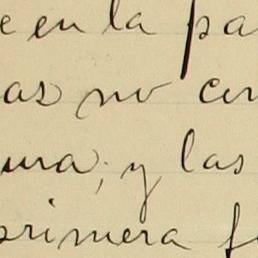 e en la pa
as no cer
ura; y las
primera f